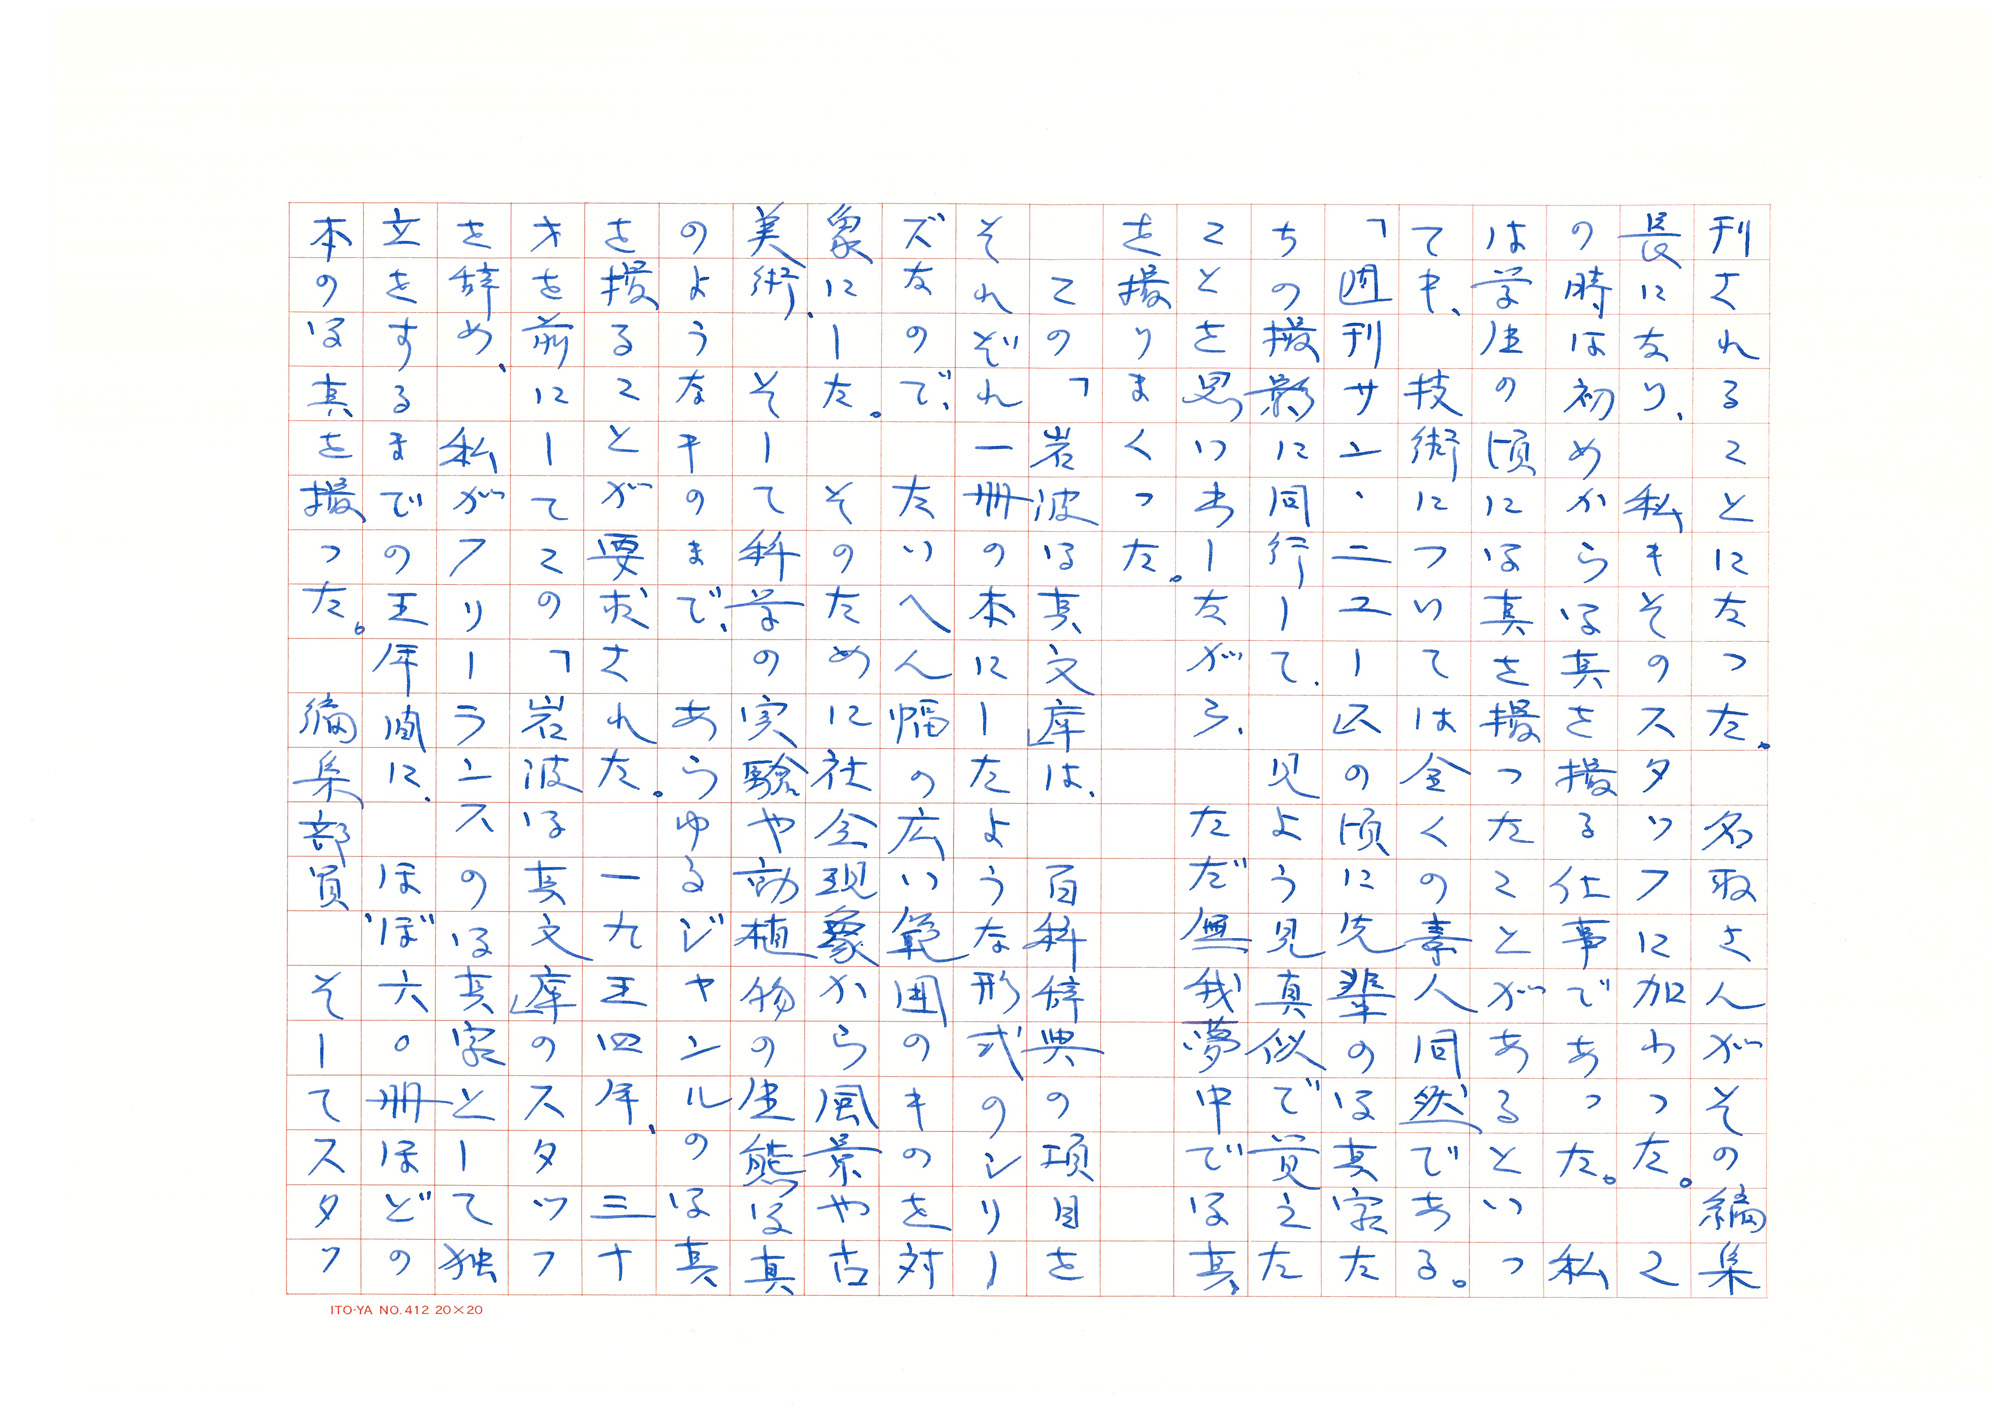 刊されることになった。名取さんがその編集
長になり、私もそのスタッフに加わった。こ
の時は初めから写真を撮る仕事であった。私
は学生の頃に写真を撮ったことがあるといっ
ても、技術については全くの素人同然である。
「週刊サン・ニュース」の頃に先輩の写真家た
ちの撮影に同行して、見よう見真似で覚えた
ことを思い出しながら、ただ無我夢中で写真
を撮りまくった。
この「岩波写真文庫」は、百科辞典の項目を
それぞれ一冊の本にしたような形式のシリー
ズなので、たいへん幅の広い範囲のものを対
象にした。そのために社会現象から風景や古
美術、そして科学の実験や動植物の生態写真
のようなものまで、あらゆるジャンルの写真
を撮ることが要求された。一九五四年、三十
才を前にしてこの「岩波写真文庫」のスタッフ
を辞め、私がフリーランスの写真家として独
立をするまでの五年間に、ほぼ六〇冊ほどの
本の写真を撮った。編集部員 そしてスタッ
ITO-YA NO.412 20×20